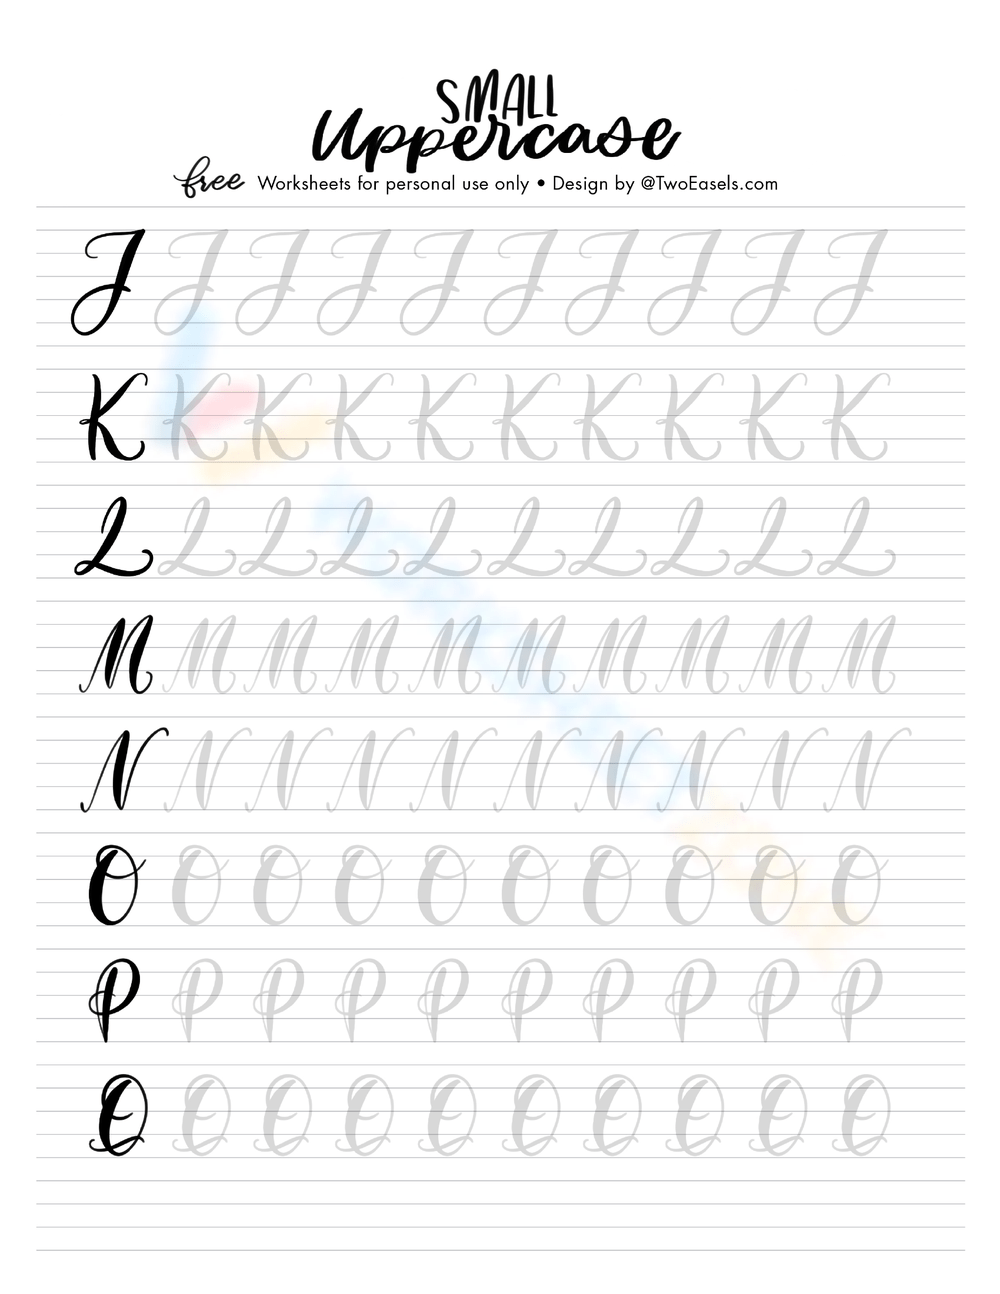 SMALL
Uppercase
free Worksheets for personal use only • Design by @TwoEasels.com
J J J J J J J J J J
K K K K K K K K K K
L L L L L L L L L L
M M M M M M M M M M
N N N N N N N N N N
O O O O O O O O O O
P P P P P P P P P P
Q Q Q Q Q Q Q Q Q Q